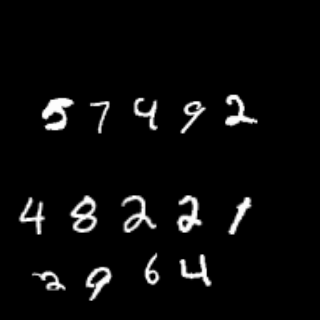 57492
48221
2964